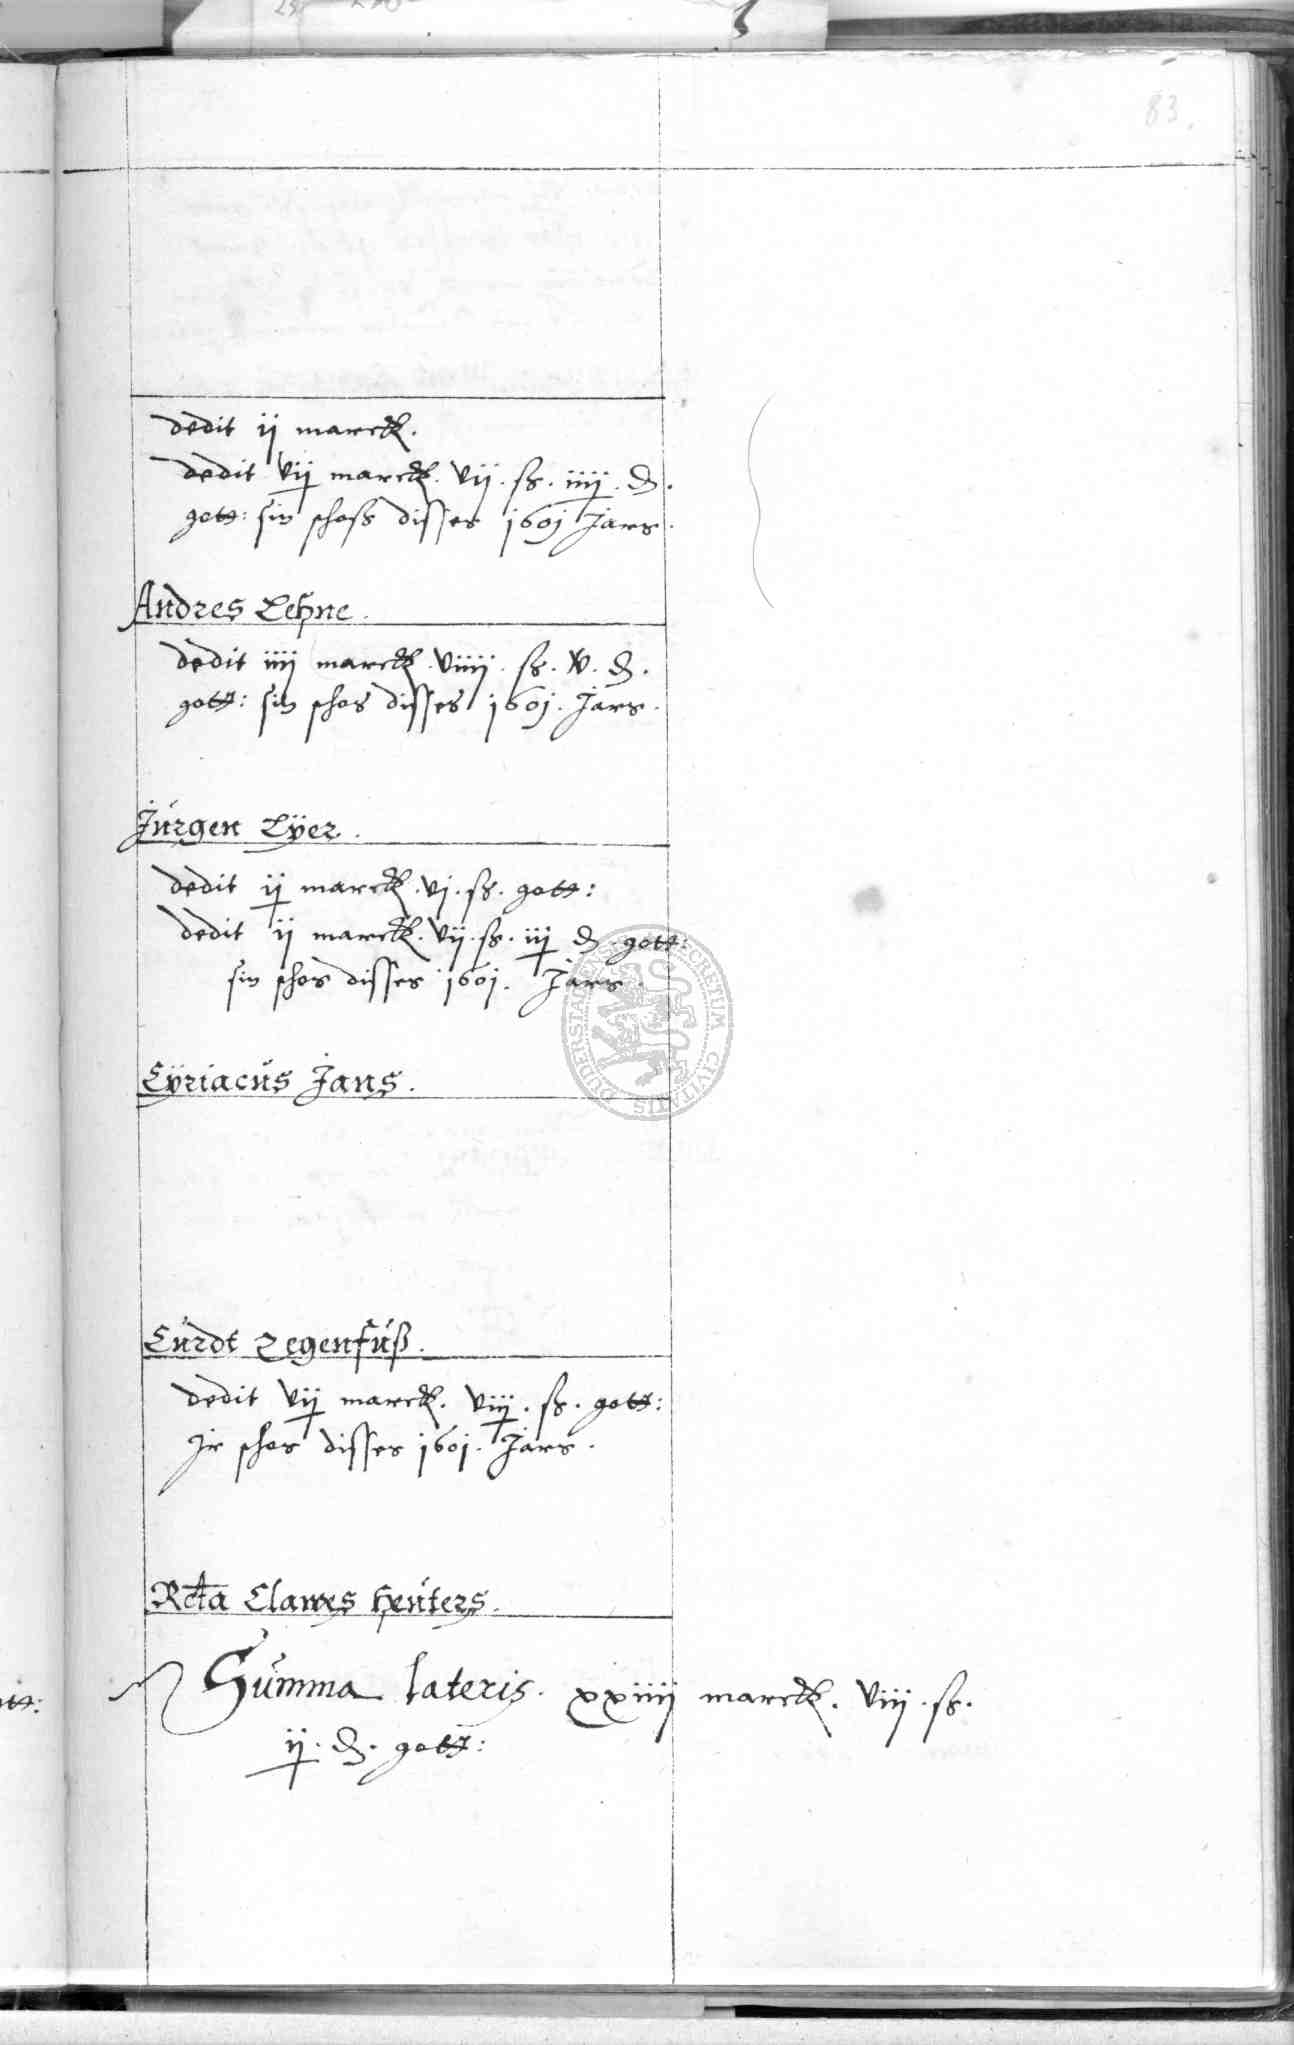 83.
dedit ij marck.
dedit vij marck. vij. ß. iiij. d.
gott: sin schoß disses 1601 Jars.
Andres Lehne.
dedit iiij marck. viiij. ß. v. d.
gott: sin schos disses 1601. Jars.
Jürgen Lÿer.
dedit ij marck. vj. ß. gott:
dedit ij marck. vij. ß. iij d. gott:
sin schos disses 1601. Jars.
Cÿriacus Jans.
Curdt Zegenfuß.
dedit vij marck. viij. ß. gott:
Jr schos disses 1601. Jars.
Rcta Clawes Heuters.
Summa lateris. xxiiij marck. viij. ß.
ij. d. gott:
SECRETUM CIVITATIS DUDERSTADENSIS